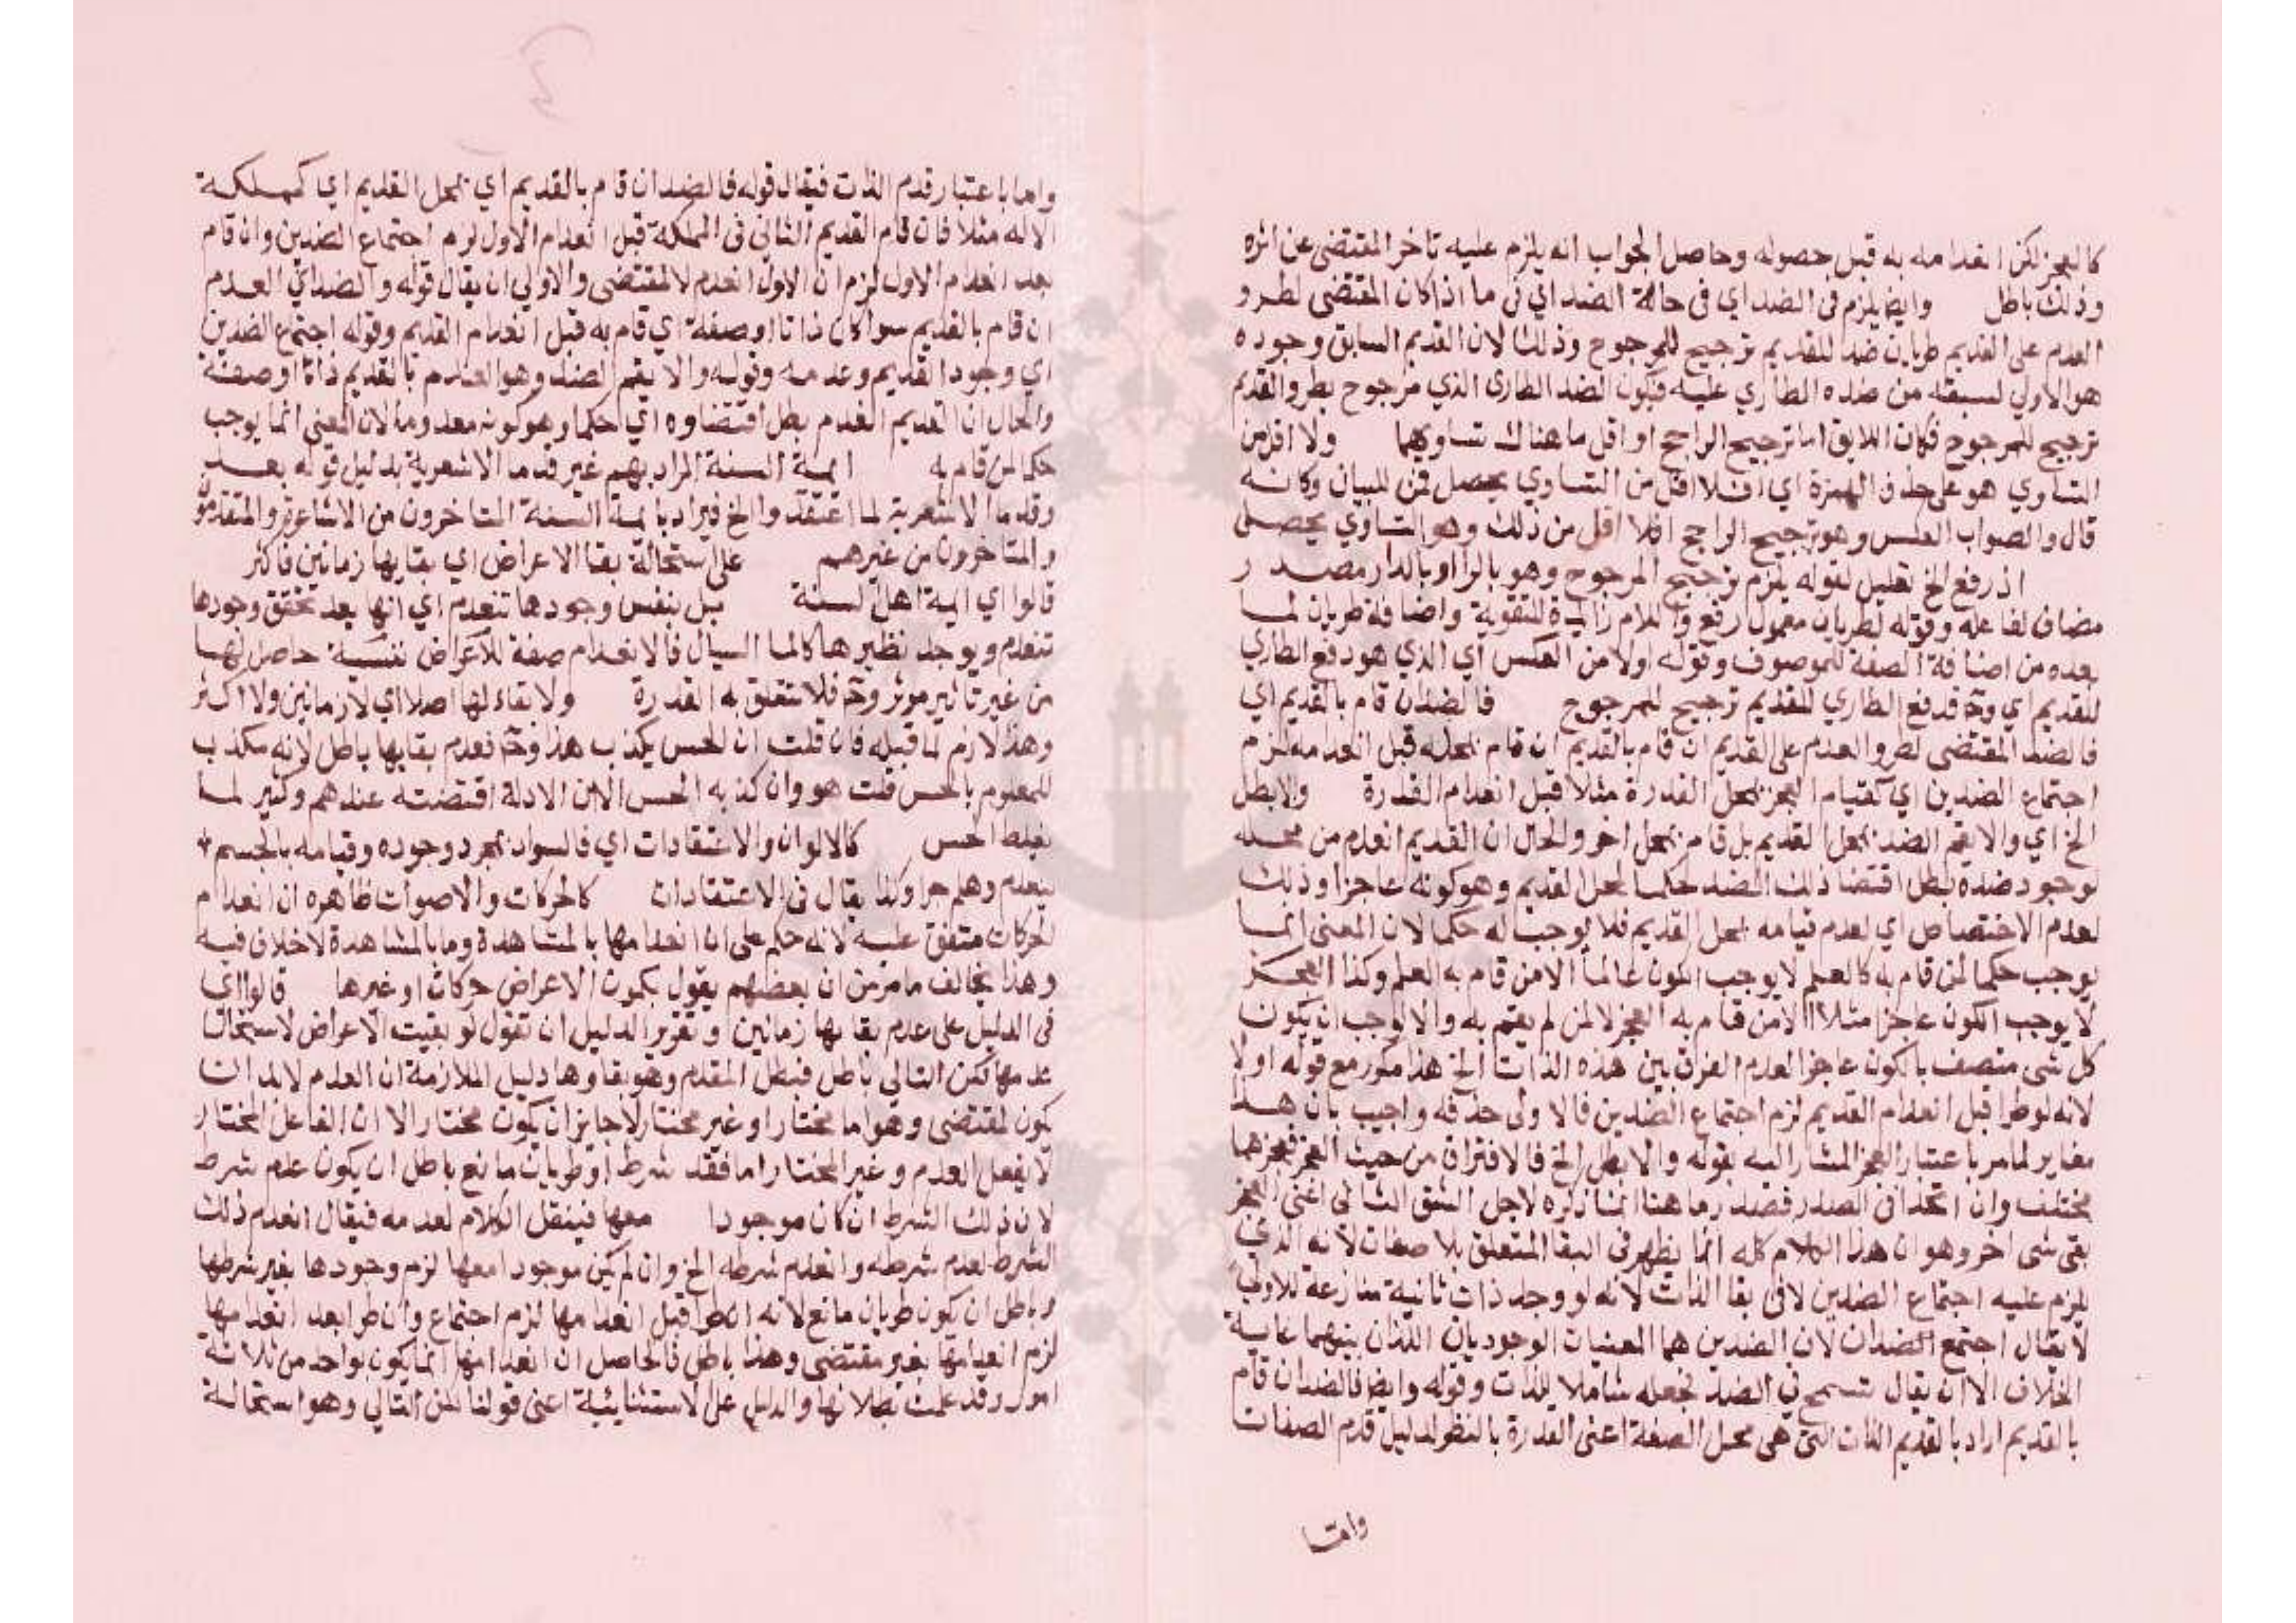 كالعجز لكن انعدامه به قبل حصوله وحاصل الجواب انه يلزم عليه تاخر المقتضى عن اثره
وذلك باطل وايضا يلزم فى الضد اي فى حالة الضد اي فى ما اذا كان المقتضى لطرو
العدم على القديم طريان ضد للقديم ترجيح للمرجوح وذلك لان القديم السابق وجوده
هو الاولي لسبقه من ضده الطاري عليه فيكون لضد الطارى الذي مرجوح بطرو القدم
ترجيح للمرجوح فكان اللايق اما ترجيح الراجح او اقل ما هناك تساويهما ولا اقل من
التساوي هو على حذف الهمزة اي افلا اقل من التساوي يحصل فمن للبيان وكانه
قال والصواب العكس وهو ترجيح الراجح افلا اقل من ذلك وهو التساوي يحصل
اذ رفع الخ تعليل لقوله يلزم ترجيح المرجوح وهو بالرا او بالدال مصدر
مضاف لفاعله وقوله لطريان معمول لرفع واللام زايدة للتقوية واضافة طريان لما
بعده من اضافة الصفة للموصوف وقوله اولا من العكس اي الذي هو دفع الطاري
للقديم اي وح فدفع الطاري للقديم ترجيح للمرجوح فالضدان قام بالقديم اي
فالضد المقتضى لطرو العدم على القديم ان قام بالقديم ان قام بمحله قبل انعدامه لزم
اجتماع الضدين اي كقيام العجز بمحل القدرة مثلا قبل انعدام القدرة والا بطل
الخ اي والا يقم الضد بمحل القديم بل قام بمحل اخر والحال ان القديم انعدم من محله
لوجود ضده بطل اقتضا ذلك الضد حكما لمحل القديم وهو كونه عاجزا وذلك
لعدم الاختصاص اي لعدم قيامه بمحل القديم فلا يوجب له حكما لان المعنى انما
يوجب حكما لمن قام به كالعلم لا يوجب الكون عالما الا لمن قام به العلم وكذا العجز
لا يوجب الكون عاجزا مثلا الا لمن قام به العجز لا لمن لم يقم به والا لوجب ان يكون
كل شى متصف بالكون عاجزا لعدم الفرق بين هذه الذات الخ هذا مكرر مع قوله اولا
لانه لو طرا قبل انعدام القديم لزم اجتماع الضدين فالاولى حذفه واجيب بان هذا
مغاير لما مر باعتبار العجز المشار اليه بقوله والا بطل الخ فالافتراق من حيث العجز فعجزهما
مختلف وان اتحدا فى الصدر فصدر ما هنا انما ذكره لاجل الشق الثانى اعنى العجز
بقى شى اخر وهو ان هذا الكلام كله انما يظهر فى البقا المتعلق بالصفات لانه الذي
يلزم عليه اجتماع الضدين لا فى بقا الذات لانه لو وجد ذات ثانية منازعة للاولى
لا يقال اجتمع الضدان لان الضدين هما المعنيان الوجوديان اللذان بينهما غاية
الخلاف الا ان يقال تسمح فى الضد فجعله شاملا للذات وقوله وايضا فالضد ان قام
بالقديم اراد بالقديم الذات التى هى محل الصفة اعنى القدرة بالنظر لدليل قدم الصفات
واما
واما باعتبار قدم الذات فيقال قوله فالضد ان قام بالقديم اي بمحل القديم اي كمملكة
الاله مثلا فان قام القديم الثانى فى المملكة قبل انعدام الاول لزم اجتماع الضدين وان قام
بعد انعدام الاول لزم ان الاول انعدم لا لمقتضى والاولي ان يقال قوله والضد اي العدم
ان قام بالقديم سوا كان ذاتا او صفة اي قام به قبل انعدام القديم وقوله اجتماع الضدين
اي وجود القديم وعدمه وقوله والا يقم الضد وهو العدم بالقديم ذاتا او صفة
والحال ان القديم انعدم بطل اقتضاوه اي حكما وهو كونه معدوما لان المعنى انما يوجب
حكما لمن قام به ايمة السنة المراد بهم غير قدما الاشعرية بدليل قوله بعد
وقدما الاشعرية لما اعتقدوا الخ فيراد بايمة السنة المتاخرون من الاشاعرة والمتقدمون
والمتاخرون من غيرهم على استحالة بقا الاعراض اي بقايها زمانين فاكثر
قالوا اي ايمة اهل السنة بل بنفس وجودها تنعدم اي انها بعد تحقق وجودها
تنعدم ويوجد نظيرها كالما السيال فالانعدام صفة للاعراض نفسية حاصل لها
من غير تاثير موثر وح فلا تتعلق به القدرة ولا بقاء لها اصلا اي لا زمانين ولا اكثر
وهذا لازم لما قبله فان قلت ان الحس يكذب هذا وح فعدم بقايها باطل لانه مكذب
للمعلوم بالحس قلت هو وان كذبه الحس الا ان الادلة اقتضته عندهم وكثير لما
يغلط الحس كالالوان والاعتقادات اي فالسواد بمجرد وجوده وقيامه بالجسم
ينعدم وهلم جرا وكذا يقال فى الاعتقادات كالحركات والاصوات ظاهره ان انعدام
الحركات متفق عليه لانه حكم على ان انعدامها بالمشاهدة وما بالمشاهدة لا خلاف فيه
وهذا يخالف ما مر من ان بعضهم يقول بكمون الاعراض حركات او غيرها قالوا اي
فى الدليل على عدم بقايها زمانين وتقرير الدليل ان تقول لو بقيت الاعراض لاستحال
عدمها لكن التالي باطل فبطل المقدم وهو بقاوها دليل الملازمة ان العدم لابد ان
يكون لمقتضى وهو اما مختار او غير مختار لا جايز ان يكون مختارا لان الفاعل المختار
لا يفعل العدم وغير المختار اما فقد شرط او طريان مانع باطل ان يكون عدم شرط
لان ذلك الشرط ان كان موجودا معها فينقل الكلام لعدمه فيقال انعدم ذلك
الشرط لعدم شرطه وانعدم شرطه الخ وان لم يكن موجودا معها لزم وجودها بغير شرطها
وباطل ان يكون طريان مانع لانه ان طرا قبل انعدامها لزم اجتماع وان طرا بعد انعدامها
لزم انعدامها بغير مقتضى وهذا باطل فالحاصل ان انعدامها انما يكون بواحد من ثلاثة
امور وقد علمت بطلانها والدليل على الاستثنائية اعنى قولنا لكن التالي وهو استحالة